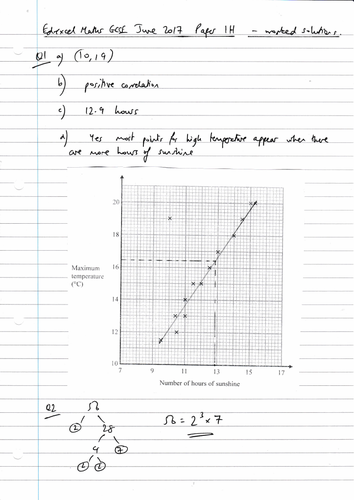 Edexcel Maths GCSE June 2017 Paper 1H – worked solutions.
Q1 a) (10, 19)
b) positive correlation
c) 12.9 hours
d) Yes most points for high temperature appear when there
are more hours of sunshine
20
18
16
14
12
10
Maximum
temperature
(°C)
7 9 11 13 15 17
Number of hours of sunshine
Q2
56
56 = 2³ × 7
2 28
4 7
2 2